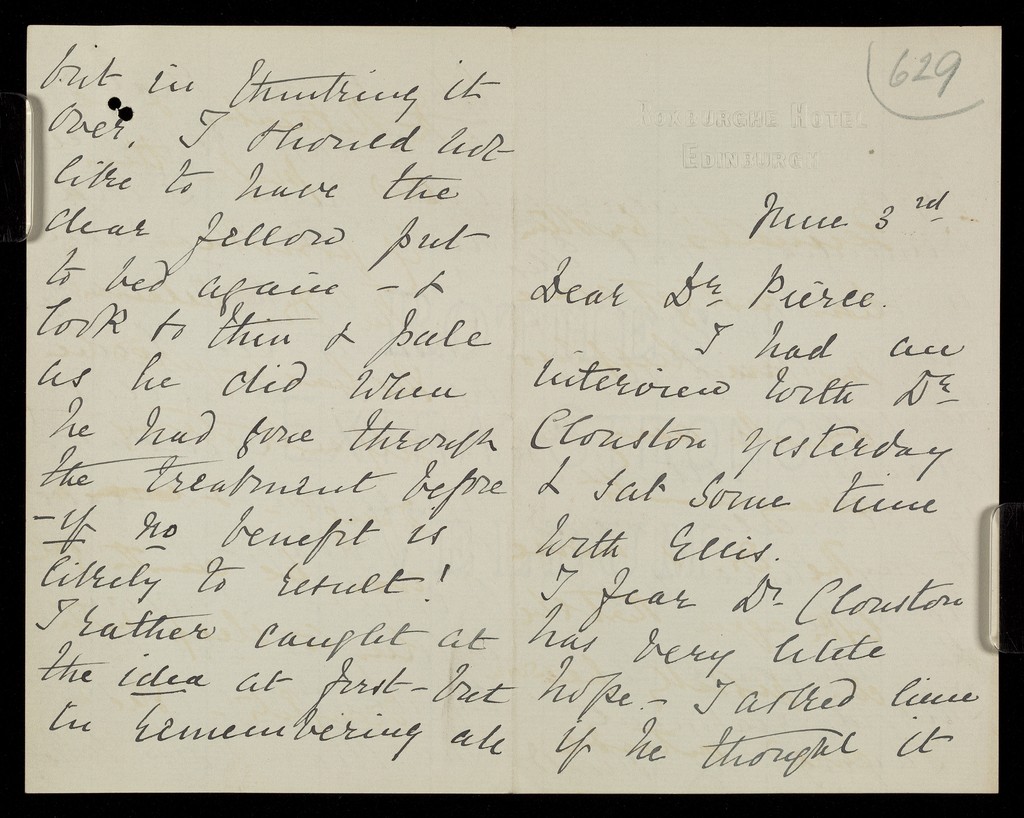 but in thinking it
over, I should not
like to have the
dear fellow put
to bed again - &
look so thin & pale
as he did when
he had gone through
the treatment before
- if no benefit is
likely to result!
I rather caught at
the idea at first - but
in remembering all
629
Roxburghe Hotel
Edinburgh
June 3rd
Dear Dr. Pierce.
I had an
interview with Dr.
Clouston yesterday
& sat some time
with Ellis.
I fear Dr. Clouston
has very little
hope. - I asked him
if he thought it